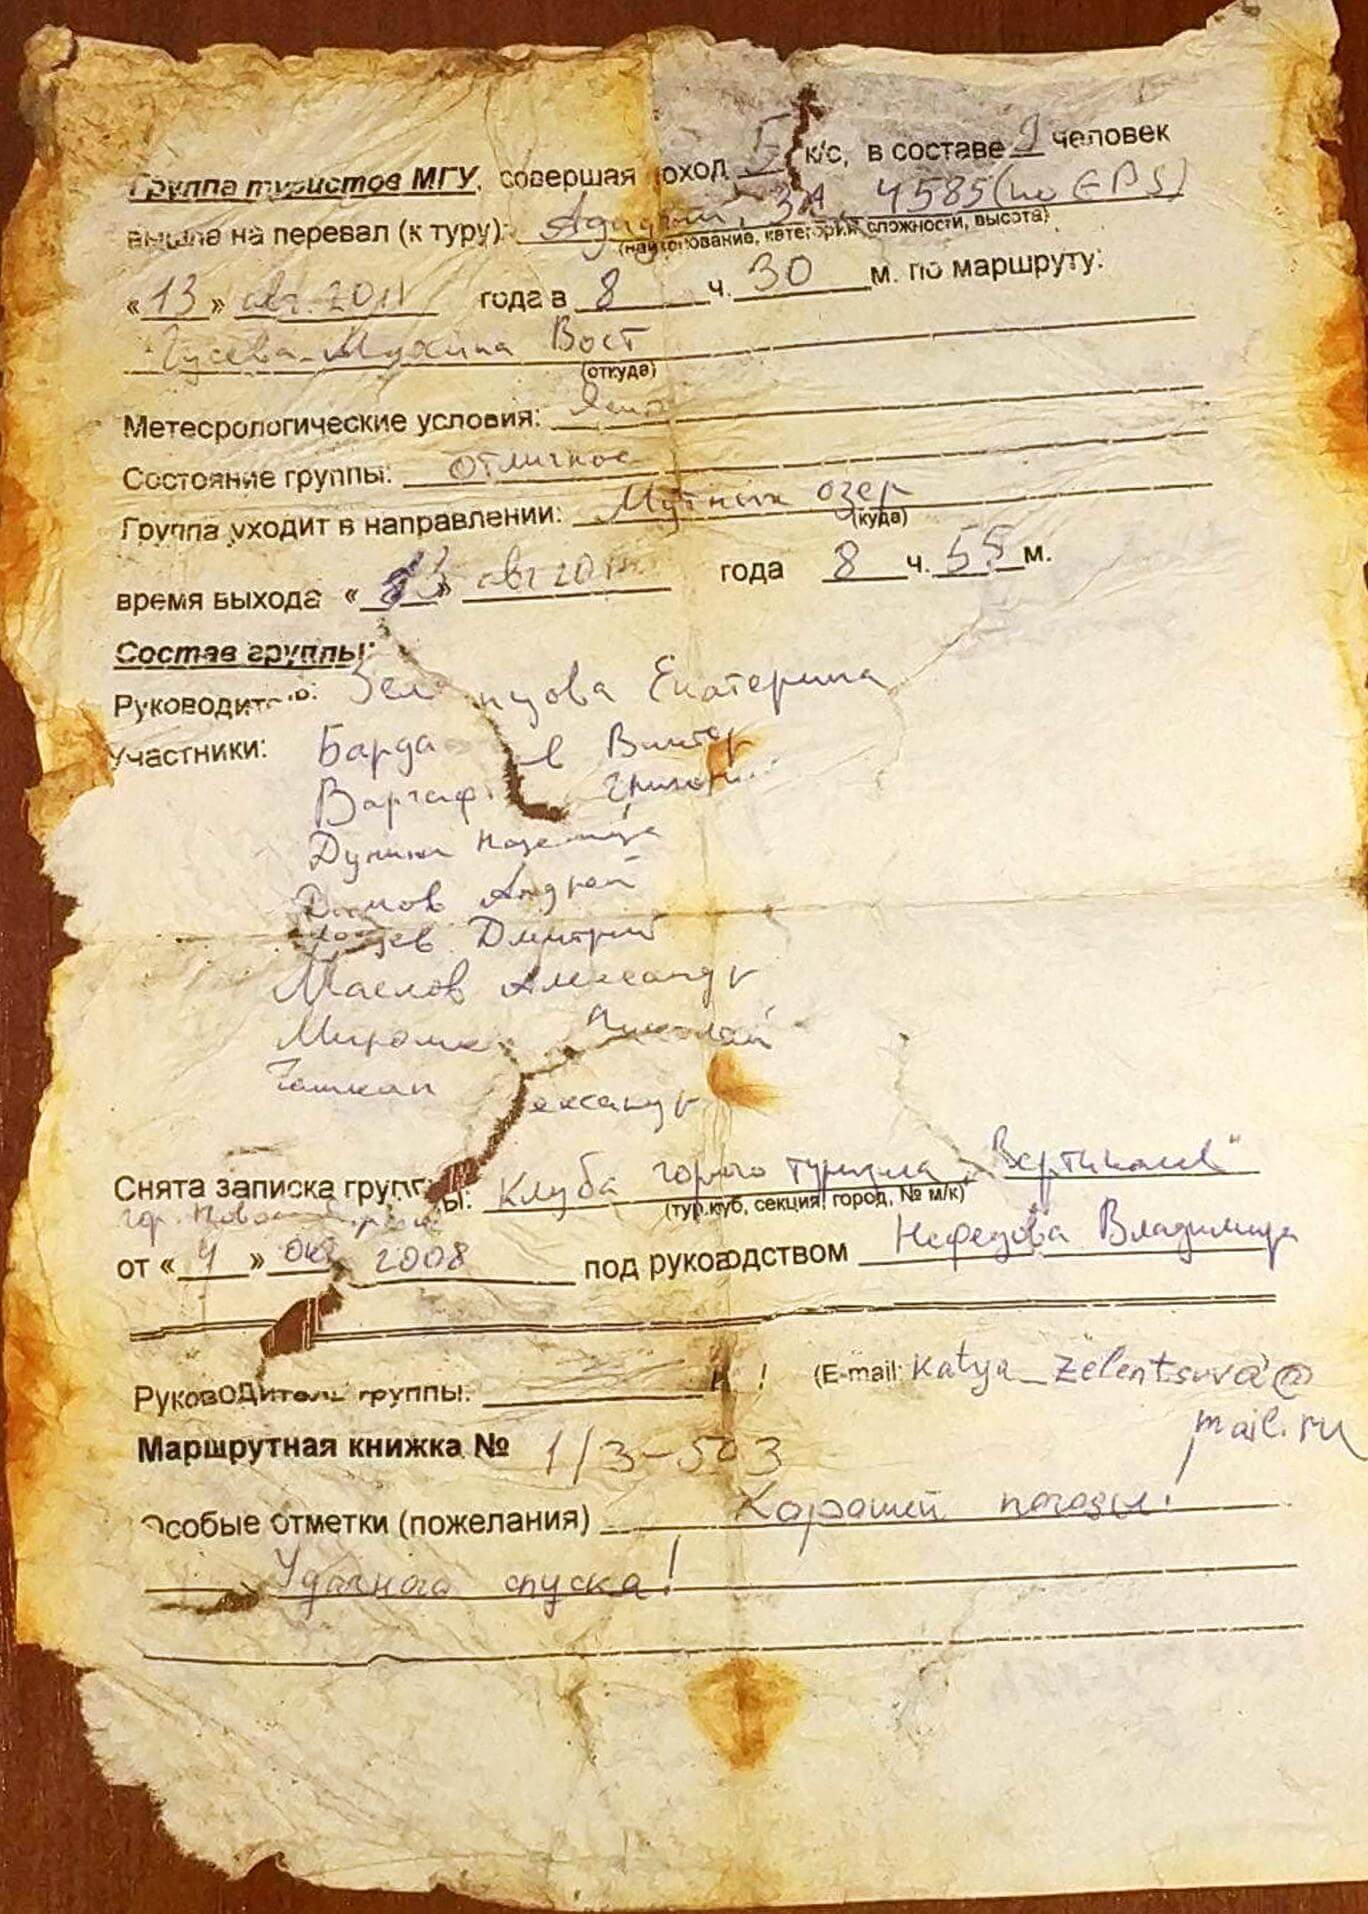 Группа туристов МГУ, совершая поход 5 к/с, в составе 9 человек
вышла на перевал (к туру): 3А, 4585 (по GPS)
(наименование, категория сложности, высота)
«13» авг. 2011 года в 8 ч. 30 м. по маршруту:
Гусева-Мухина Вост
(откуда)
Метеорологические условия: Ясно
Состояние группы: отличное
Группа уходит в направлении: Мутных озер
(куда)
время выхода «13» авг 2011 года 8 ч. 55 м.
Состав группы:
Руководитель: Зеленцова Екатерина
Участники: Барда в Виктор
Варгаф Григорий
Дунина
Андрей
Дмитрий
Маслов Александр
Мирошн Николай
ександр
Снята записка группы: Клуба горного туризма „Вертикаль"
(тур.клуб, секция, город, № м/к)
гор.
от «4» 2008 под руководством Нефедова Владимира
Руководитель группы: ! (E-mail: katya_zelentsova@
mail.ru
Маршрутная книжка № 1/3-503
Особые отметки (пожелания) Хорошей погоды!
Удачного спуска!